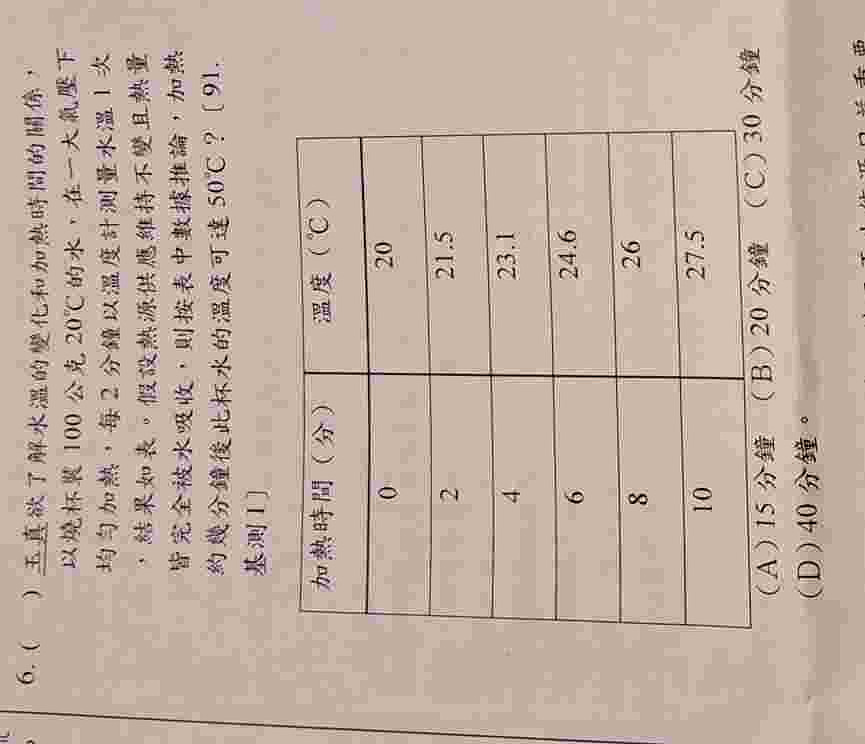 6.(　　)玉真欲了解水溫的變化和加熱時間的關係，
以燒杯裝 100 公克 20℃的水，在一大氣壓下
均勻加熱，每 2 分鐘以溫度計測量水溫 1 次
，結果如表。假設熱源供應維持不變且熱量
皆完全被水吸收，則按表中數據推論，加熱
約幾分鐘後此杯水的溫度可達 50℃？〔91.
基測Ⅰ〕
加熱時間（分） 溫度（℃）
0 20
2 21.5
4 23.1
6 24.6
8 26
10 27.5
(A)15 分鐘 (B)20 分鐘 (C)30 分鐘
(D)40 分鐘。